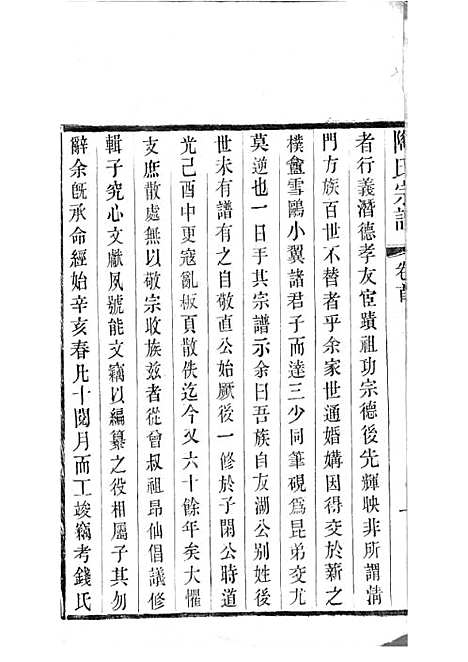 陶氏宗譜
卷首
者行義潛德孝友宦蹟祖功宗德後先輝映非所謂清
門方族百世不替者乎余家世通婚媾因得交於新之
樸盦雪鷗小翼諸君子而達三少同筆硯爲昆弟交尤
莫逆也一日手其宗譜示余曰吾族自友湖公別姓後
世未有譜有之自敬直公始厥後一修於子閑公時道
光己酉中更寇亂板頁散佚迄今又六十餘年矣大懼
支庶散處無以敬宗收族兹者從曾叔祖昂仙倡議修
輯子究心文獻夙號能文竊以編纂之役相屬子其勿
辭余旣承命經始辛亥春凡十閱月而工竣竊考錢氏